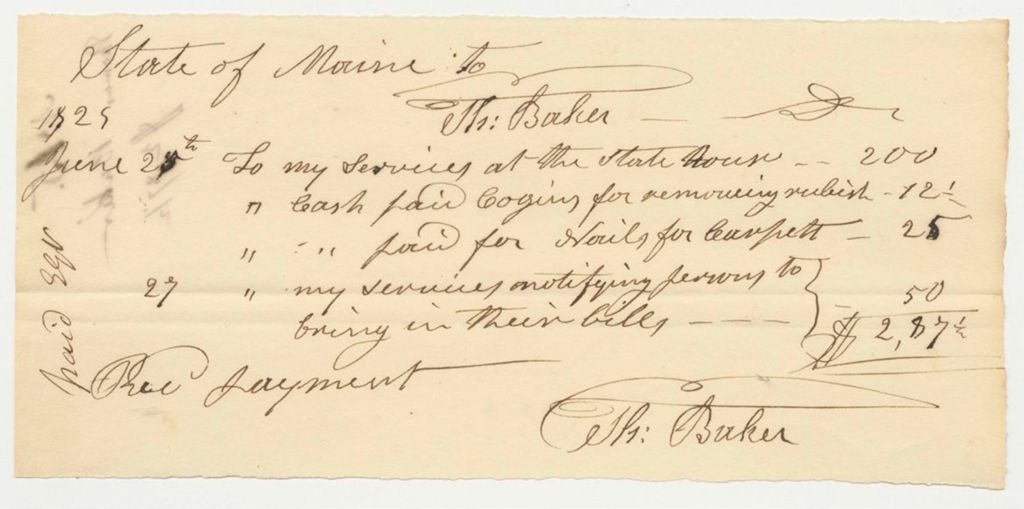 State of Maine to
Th: Baker — Dr
1825
June 25th To my services at the State House -- 200
" Cash paid Cogins for removing rubish - 12½
" " " paid for Nails for Carpett — 25
27 " my services notifying persons to
bring in their bills - - - - 50
$ 2,87½
Rec payment
Th: Baker
paid